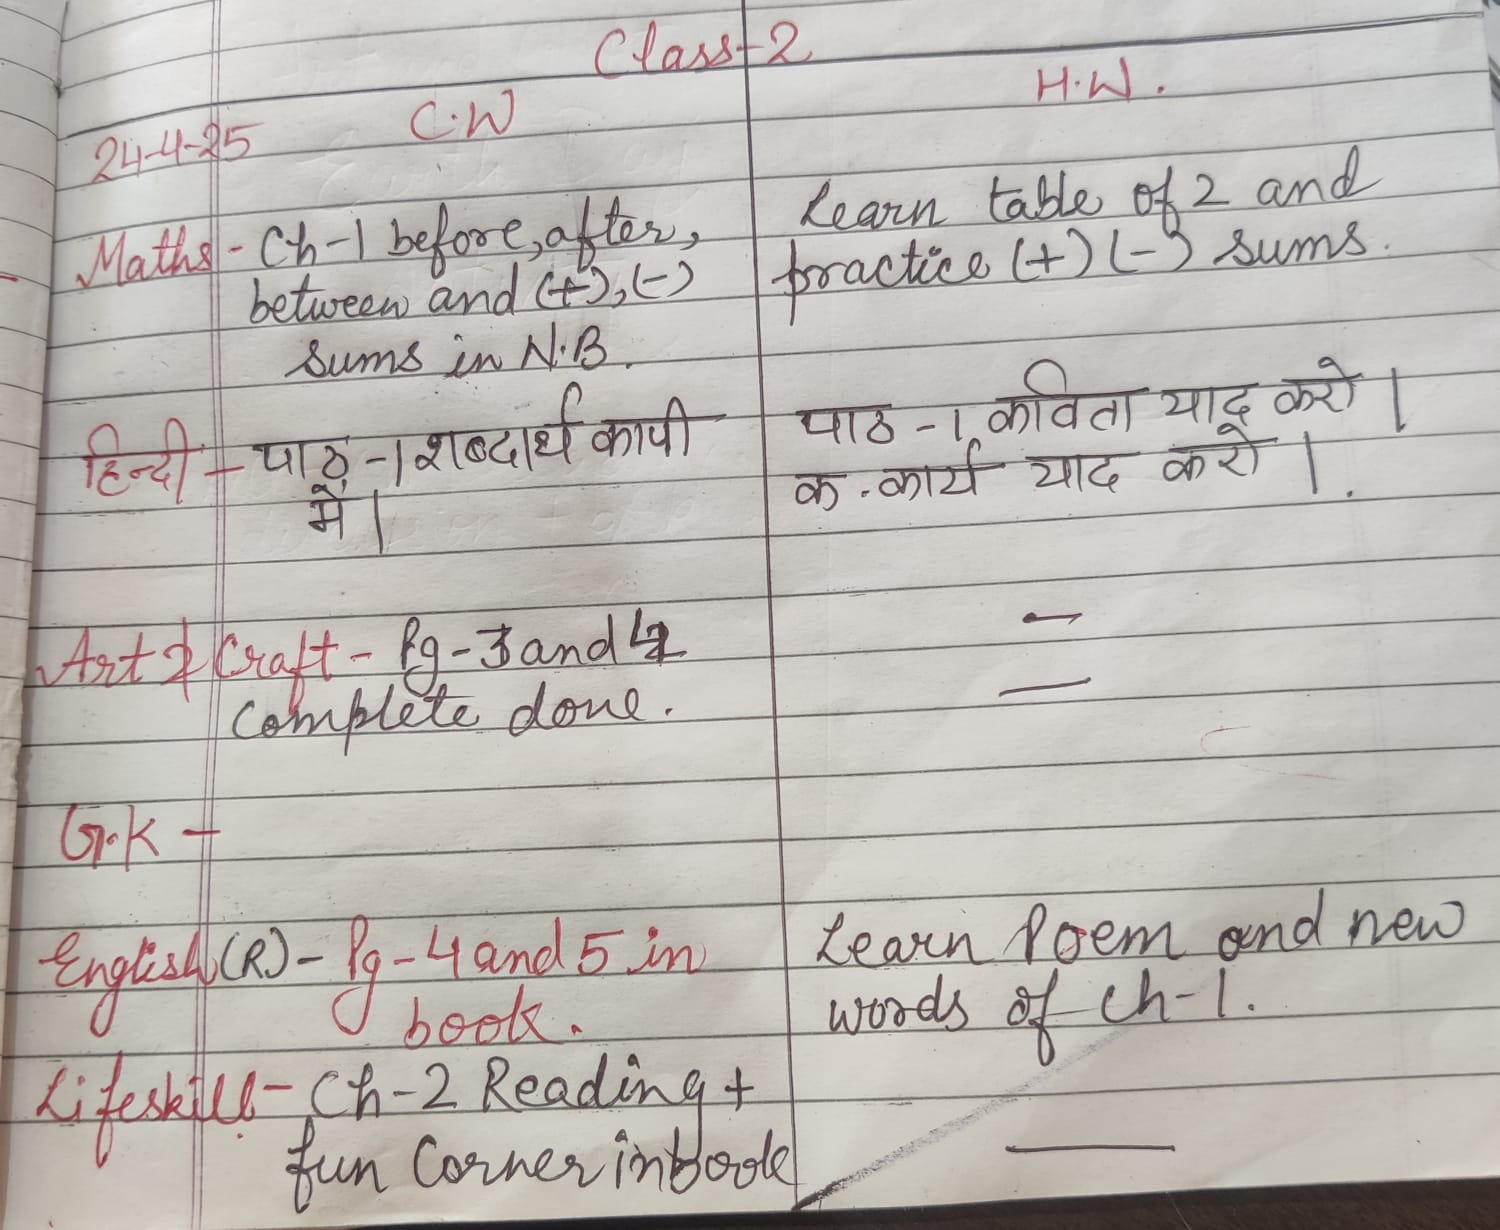 Class-2
C.W
H.W.
24-4-25
Maths - Ch-1 before, after,
between and (+), (-)
sums in N.B.
Learn table of 2 and
practice (+) (-) sums.
हिन्दी - पाठ-1 शब्दार्थ कापी
में।
पाठ-1, कविता याद करो।
क.कार्य याद करो।
Art & Craft - Pg-3 and 4
Complete done.
—
—
G.K -
English (R) - Pg-4 and 5 in
book.
Learn Poem and new
words of Ch-1.
Lifeskill - Ch-2 Reading +
fun Corner in book
—